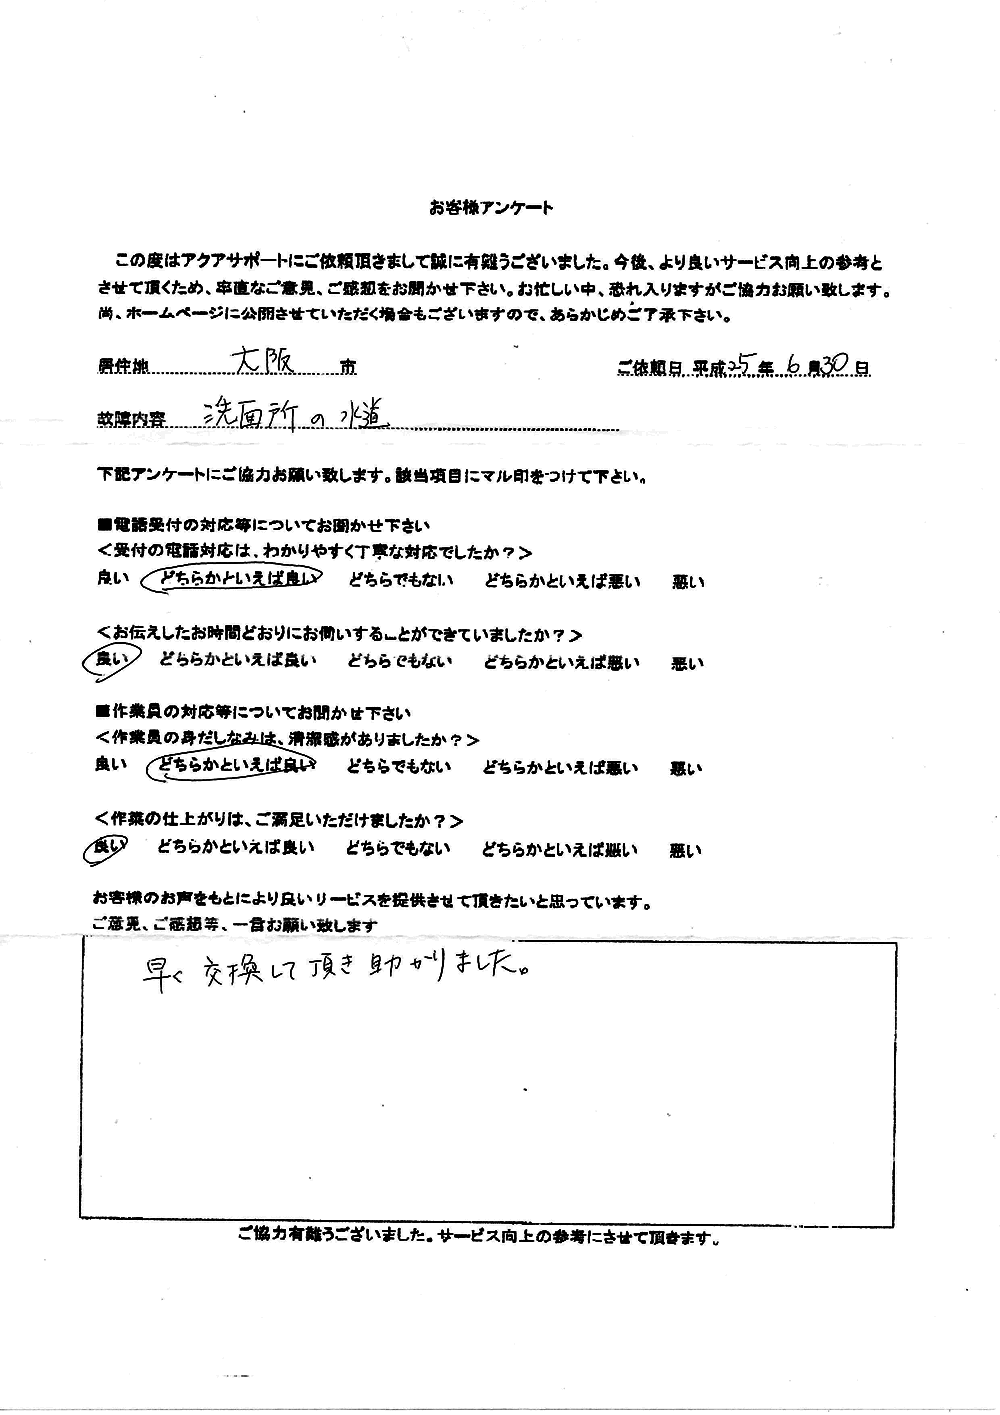 お客様アンケート
この度はアクアサポートにご依頼頂きまして誠に有難うございました。今後、より良いサービス向上の参考と
させて頂くため、率直なご意見、ご感想をお聞かせ下さい。お忙しい中、恐れ入りますがご協力お願い致します。
尚、ホームページに公開させていただく場合もございますので、あらかじめご了承下さい。
居住地 大阪 市 ご依頼日 平成25年6月30日
故障内容 洗面所の水道
下記アンケートにご協力お願い致します。該当項目にマル印をつけて下さい。
■電話受付の対応等についてお聞かせ下さい
<受付の電話対応は、わかりやすく丁寧な対応でしたか?>
良い どちらかといえば良い どちらでもない どちらかといえば悪い 悪い
<お伝えしたお時間どおりにお伺いすることができていましたか?>
良い どちらかといえば良い どちらでもない どちらかといえば悪い 悪い
■作業員の対応等についてお聞かせ下さい
<作業員の身だしなみは、清潔感がありましたか?>
良い どちらかといえば良い どちらでもない どちらかといえば悪い 悪い
<作業の仕上がりは、ご満足いただけましたか?>
良い どちらかといえば良い どちらでもない どちらかといえば悪い 悪い
お客様のお声をもとにより良いサービスを提供させて頂きたいと思っています。
ご意見、ご感想等、一言お願い致します
早く交換して頂き助かりました。
ご協力有難うございました。サービス向上の参考にさせて頂きます。